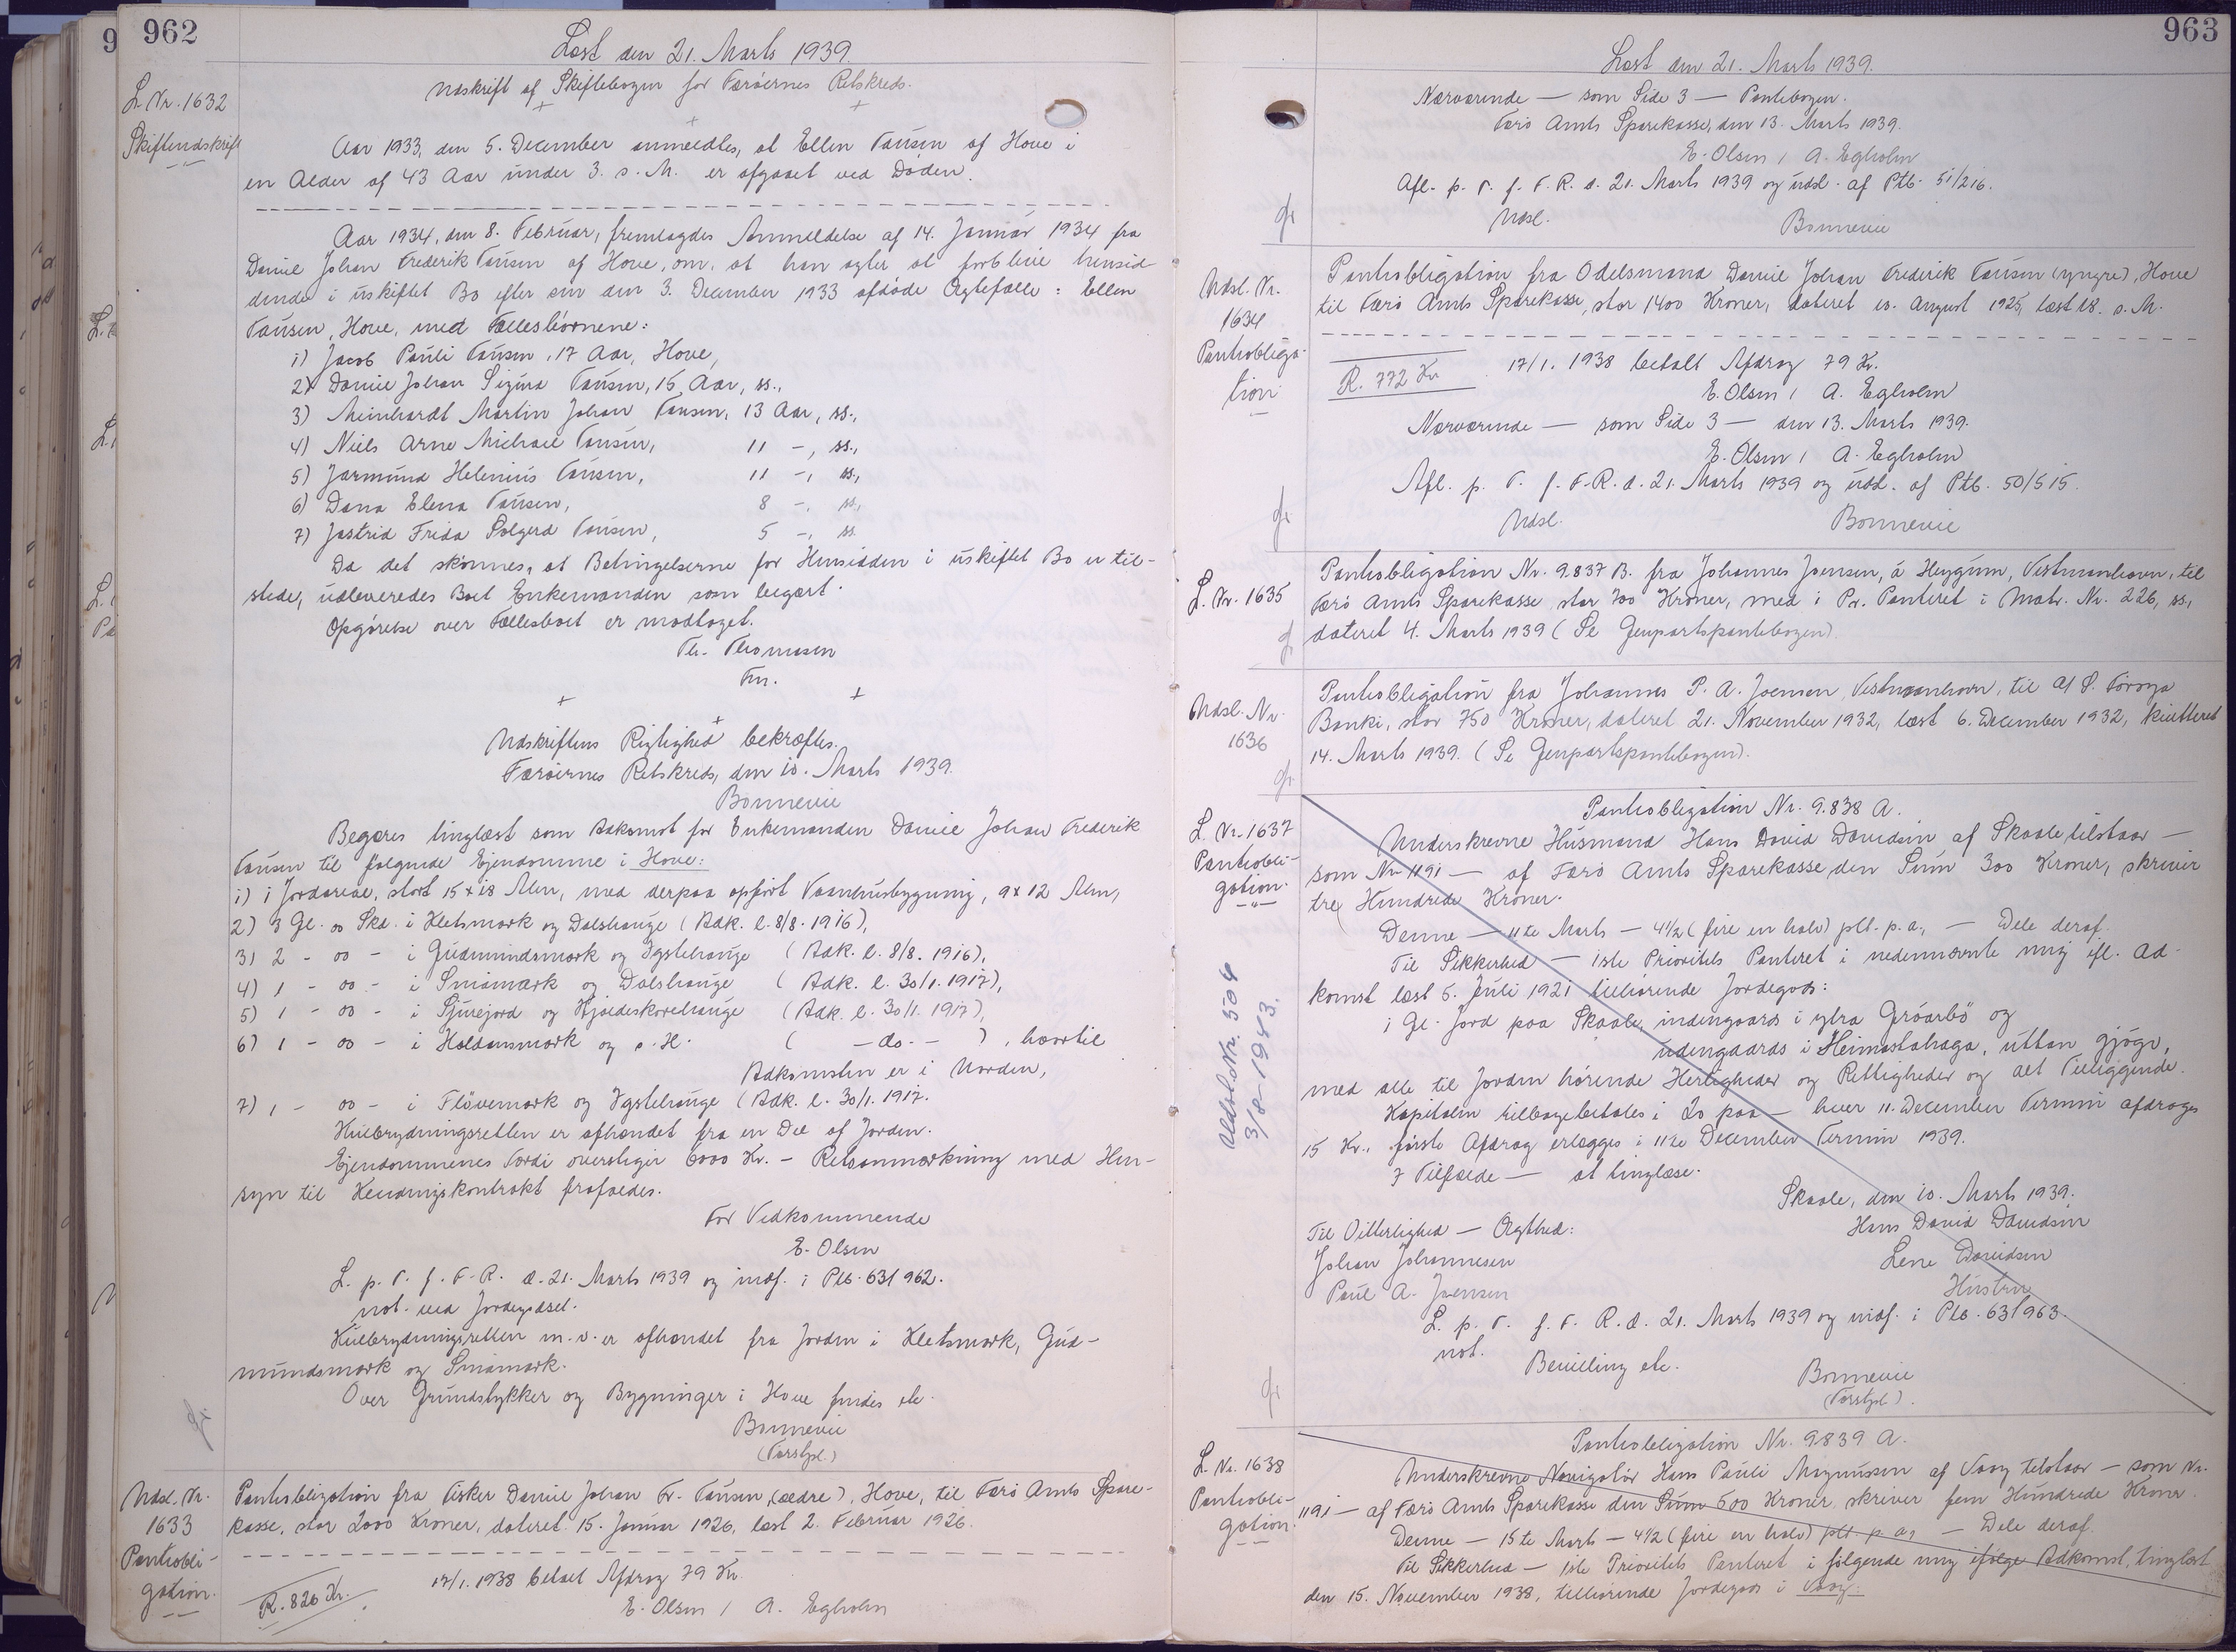 962
Læst den 21. Marts 1939.
L. Nr. 1632
Skifteudskrift
Udskrift af Skiftebogen for Færøernes Retskreds.
Aar 1933, den 5. December anmeldtes, at Ellen Tausen af Hove i
en Alder af 43 Aar under 3. s. M. er afgaaet ved Døden.
Aar 1934, den 8. Februar, fremlagdes Anmeldelse af 14. Januar 1934 fra
Daniel Johan Frederik Tausen af Hove, om, at han agter at forblive hensid-
dende i uskiftet Bo efter sin den 3. December 1933 afdøde Ægtefælle: Ellen
Tausen, Hove, med Fællesbørnene:
1) Jacob Pauli Tausen, 17 Aar, Hove,
2) Daniel Johan Sigurd Tausen, 15 Aar, ss.,
3) Meinhardt Martin Johan Tausen, 13 Aar, ss.,
4) Niels Arne Michael Tausen, 11 -, ss.,
5) Jarmund Helenius Tausen, 11 -, ss.,
6) Dana Elena Tausen, 8 -, ss.,
7) Jastrid Frida Solgerd Tausen, 5 -, ss.
Da det skønnes, at Betingelserne for Hensidden i uskiftet Bo er til-
stede, udleveredes Boet Enkemanden som begært.
Opgørelse over Fællesboet er modtaget.
Th. Thomasen
Fm.
Udskriftens Rigtighed bekræftes.
Færøernes Retskreds, den 10. Marts 1939.
Bonnevie
Begæres tinglæst som Adkomst for Enkemanden Daniel Johan Frederik
Tausen til følgende Ejendomme i Hove:
1) 1 Jordareal, stort 15 x 18 Alen, med derpaa opført Vaanhusbygning, 9 x 12 Alen,
2) 3 Gl. 00 Skd. i Kletsmørk og Dalshauge (Adk. l. 8/8. 1916),
3) 2 - 00 - i Gudmundsmørk og Ygstehauge (Adk. l. 8/8. 1916),
4) 1 - 00 - i Smiamørk og Dalshauge (Adk. l. 30/1. 1917),
5) 1 - 00 - i Sjurejord og Kjoldeskorehauge (Adk. l. 30/1. 1917),
6) 1 - 00 - i Haldansmørk og s. H. ( - do. - ), hvortil
Adkomsten er i Orden,
7) 1 - 00 - i Fløvemørk og Ygstehauge (Adk. l. 30/1. 1917.
Kulbrydningsretten er afhændet fra en Del af Jorden.
Ejendommenes Værdi overstiger 6000 Kr. - Retsanmærkning med Hen-
syn til Kendingskontrakt frafaldes.
For Vedkommende
E. Olsen
L. p. T. f. F. R. d. 21. Marts 1939 og indf. i Ptb. 63/962.
not. ved Jordegodset.
Kulbrydningsretten m. v. er afhændet fra Jorden i Kletsmørk, Gud-
mundsmørk og Smiamørk.
Over Grundstykker og Bygninger i Hove findes etc.
Bonnevie
(Forstpl.)
Udsl. Nr.
1633
Pantobli-
gation.
Pantobligation fra Fisker Daniel Johan Fr. Tausen, (ældre), Hove, til Færø Amts Spare-
kasse, stor 2000 Kroner, dateret 15. Januar 1926, læst 2. Februar 1926.
R. 826 Kr.
17/1. 1938 betalt Afdrag 79 Kr.
E. Olsen / A. Egholm
963
Læst den 21. Marts 1939.
Nærværende — som Side 3 — Pantebogen.
Færø Amts Sparekasse, den 13. Marts 1939.
E. Olsen / A. Egholm
Afl. p. T. f. F. R. d. 21. Marts 1939 og udsl. af Ptb. 51/216.
Udsl.
Bonnevie
Udsl. Nr.
1634
Pantobliga-
tion
Pantobligation fra Odelsmand Daniel Johan Frederik Tausen (yngre), Hove
til Færø Amts Sparekasse, stor 1400 Kroner, dateret 10. August 1925, læst 18. s. M.
R. 772 Kr
17/1. 1938 betalt Afdrag 79 Kr.
E. Olsen / A. Egholm
Nærværende — som Side 3 — den 13. Marts 1939.
E. Olsen / A. Egholm
Afl. p. T. f. F. R. d. 21. Marts 1939 og udsl. af Ptb. 50/515.
Udsl.
Bonnevie
L. Nr. 1635
Pantobligation Nr. 9.837 B. fra Johannes Joensen, á Heygum, Vestmanhavn, til
Færø Amts Sparekasse, stor 700 Kroner, med 1 Pr. Panteret i Matr. Nr. 226, ss.,
dateret 4. Marts 1939 (Se Genpartspantebogen).
Udsl. Nr.
1636
Pantobligation fra Johannes P. A. Joensen, Vestmanhavn, til A/S. Føroya
Banki, stor 750 Kroner, dateret 21. November 1932, læst 6. December 1932, kvitteret
14. Marts 1939. (Se Genpartspantebogen).
L. Nr. 1637
Pantobli-
gation.
Pantobligation Nr. 9.838 A.
Underskrevne Husmand Hans David Davidsen af Skaale tilstaar —
som Nr. 1191 — af Færø Amts Sparekasse den Sum 300 Kroner, skriver
tre Hundrede Kroner.
Denne — 11te Marts — 4 1/2 (fire en halv) pCt. p. a., — Dele deraf.
Til Sikkerhed — 1ste Prioritets Panteret i nedennævnte mig ifl. Ad-
komst læst 5. Juli 1921 tilhørende Jordegods:
1 Gl. Jord paa Skaale, indengaards i ytra Gróarbø og
udengaards i Heimastahaga, uttan gjógv,
med alle til Jorden hørende Herligheder og Rettigheder og alt Tilliggende.
Kapitalen tilbagebetales i 20 paa — hver 11. December Termin afdrages
15 Kr., første Afdrag erlægges i 11te December Termin 1939.
I Tilfælde — at tinglæse.
Skaale, den 10. Marts 1939.
Hans David Davidsen
Lene Davidsen
Hustru
Til Vitterlighed — Ægthed:
Johan Johannesen
Paul A. Joensen
L. p. T. f. F. R. d. 21. Marts 1939 og indf. i Ptb. 63/963.
not.
Bevilling etc.
Bonnevie
(Forstpl.).
Udsl. d. Nr. 504
3/8-1943.
L. Nr. 1638
Pantobli-
gation.
Pantobligation Nr. 9839 A.
Underskrevne Navigatør Hans Pauli Magnussen af Vaag tilstaar — som Nr.
1191 — af Færø Amts Sparekasse den Sum 500 Kroner, skriver fem Hundrede Kroner.
Denne — 15te Marts — 4 1/2 (fire en halv) pCt. p. a., — Dele deraf.
Til Sikkerhed — 1ste Prioritets Panteret i følgende mig ifølge Adkomst, tinglæst
den 15. November 1938, tilhørende Jordegods i Vaag: